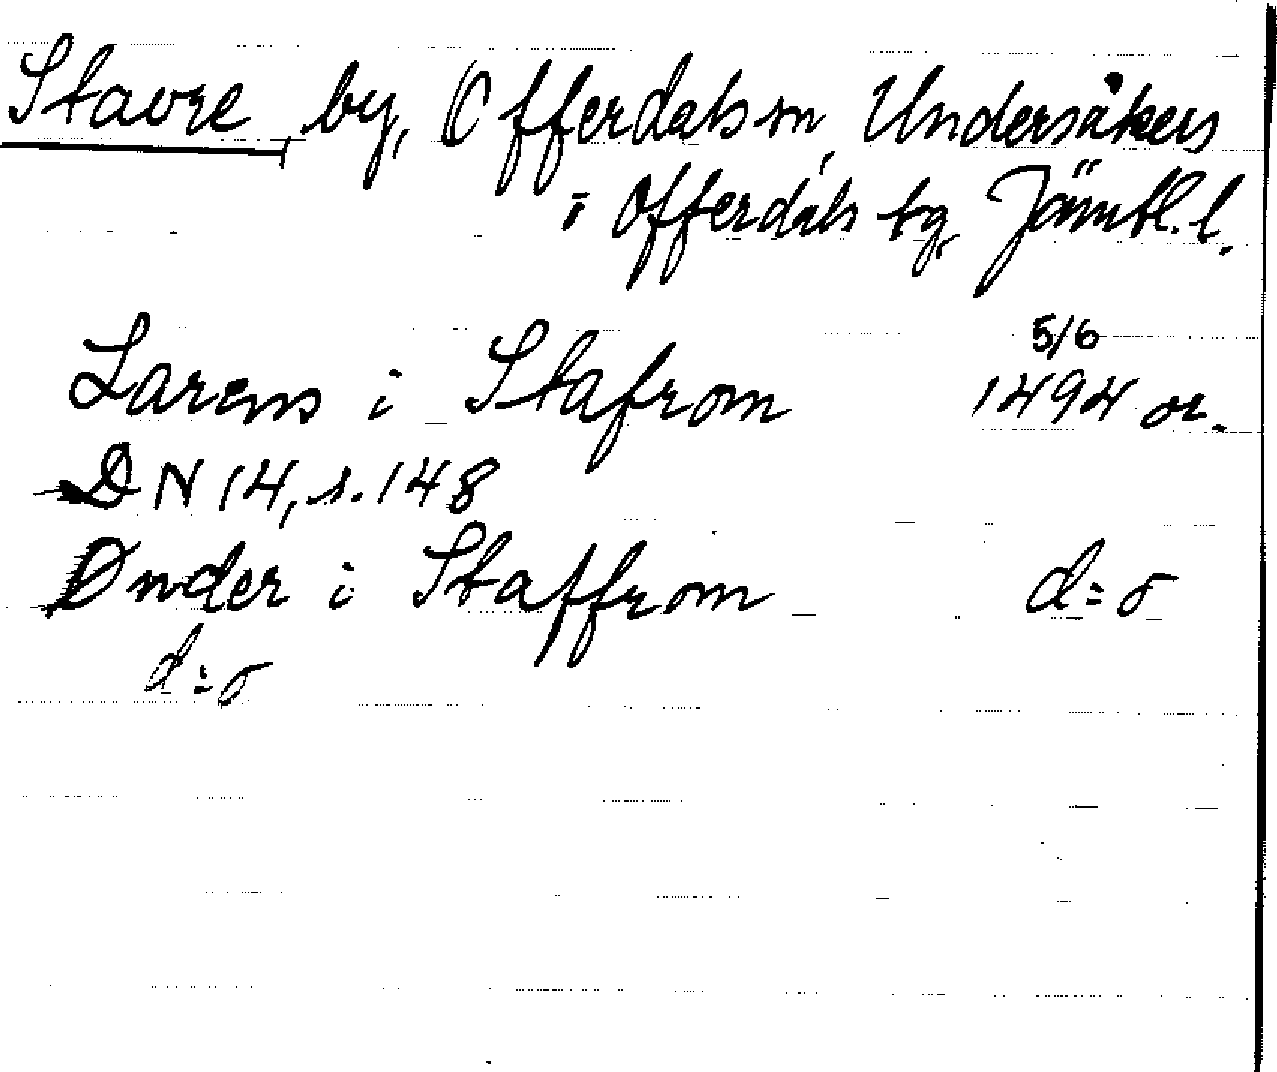 Stavre by, Offerdals sn, Undersåkers
i Offerdals tg, Jämtl. l.
5/6
Larens i Stafrom 1494 or.
DN 14, s. 148
Ønder i Staffrom d:o
d:o